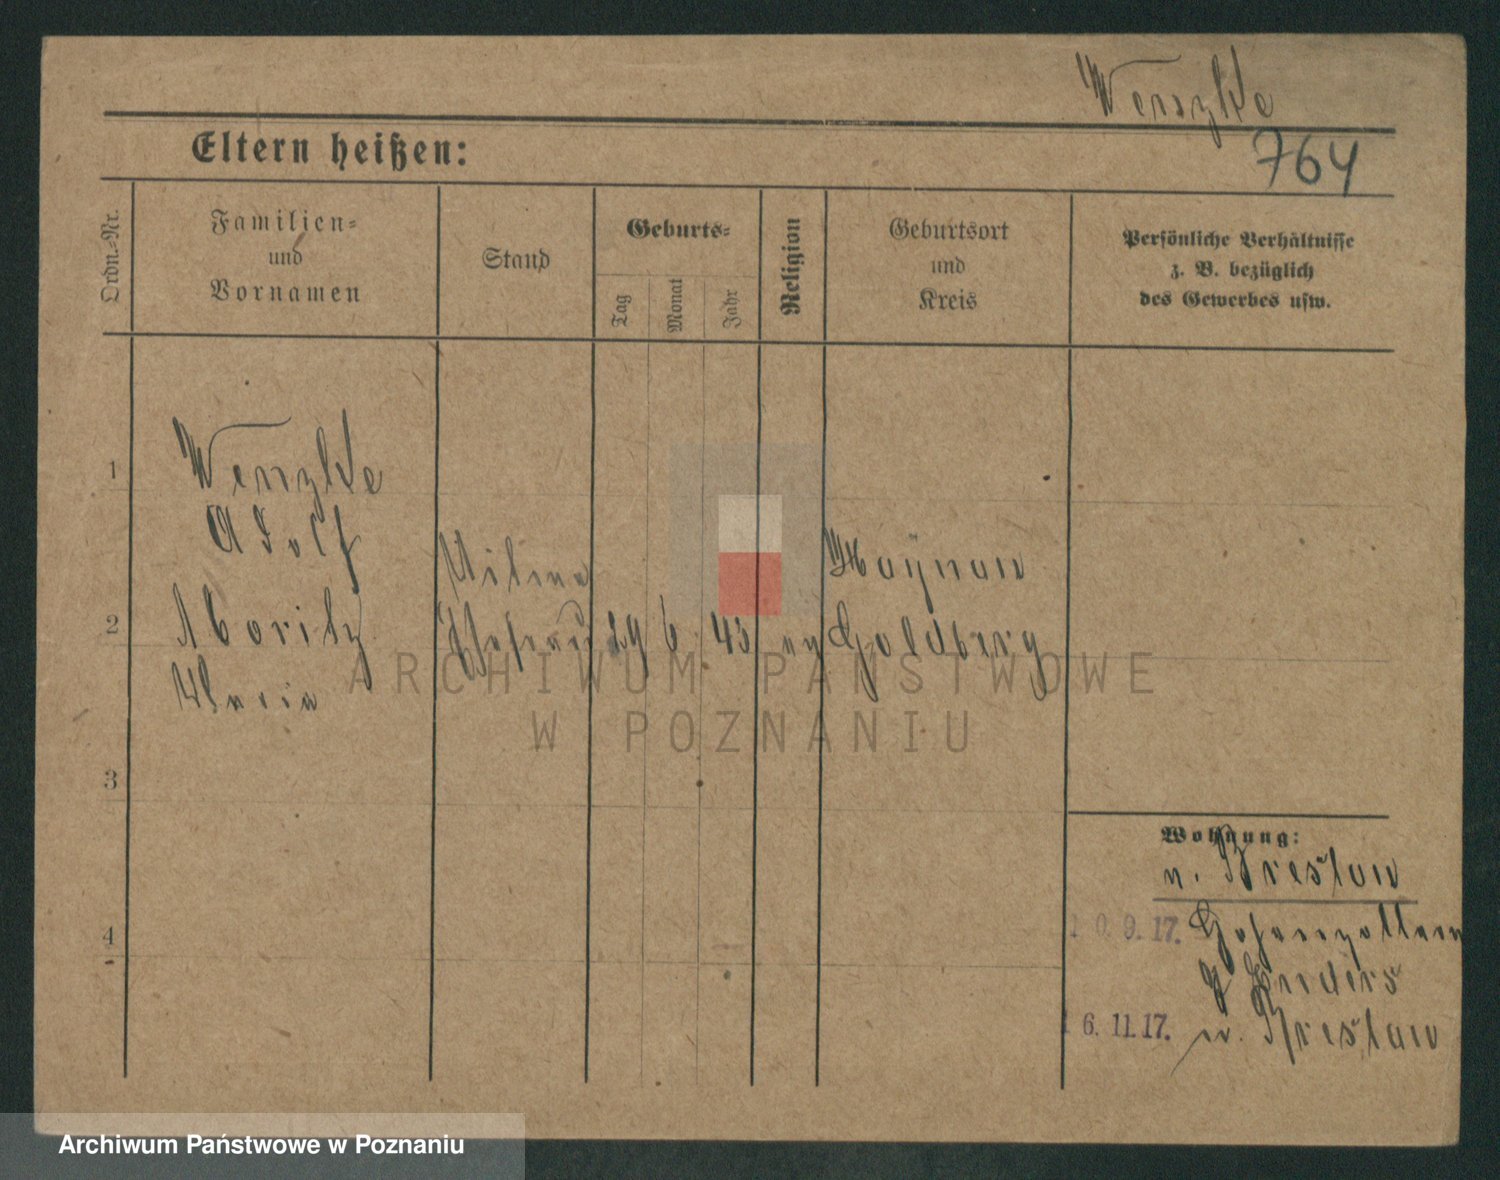 Wenzke
764
Eltern heißen:
Ordn.-Nr.
Familien-
und
Vornamen
Stand
Geburts-
Tag
Monat
Jahr
Religion
Geburtsort
und
Kreis
Persönliche Verhältnisse
z. B. bezüglich
des Gewerbes usw.
1
Adolf
2
Moritz
Maria
29 6. 43
Haynau
Goldberg
3
4
Wohnung:
n. Breslau
10.9.17. Hohenzollern
Enders
16.11.17. n. Breslau
ARCHIWUM PAŃSTWOWE
W POZNANIU
Archiwum Państwowe w Poznaniu